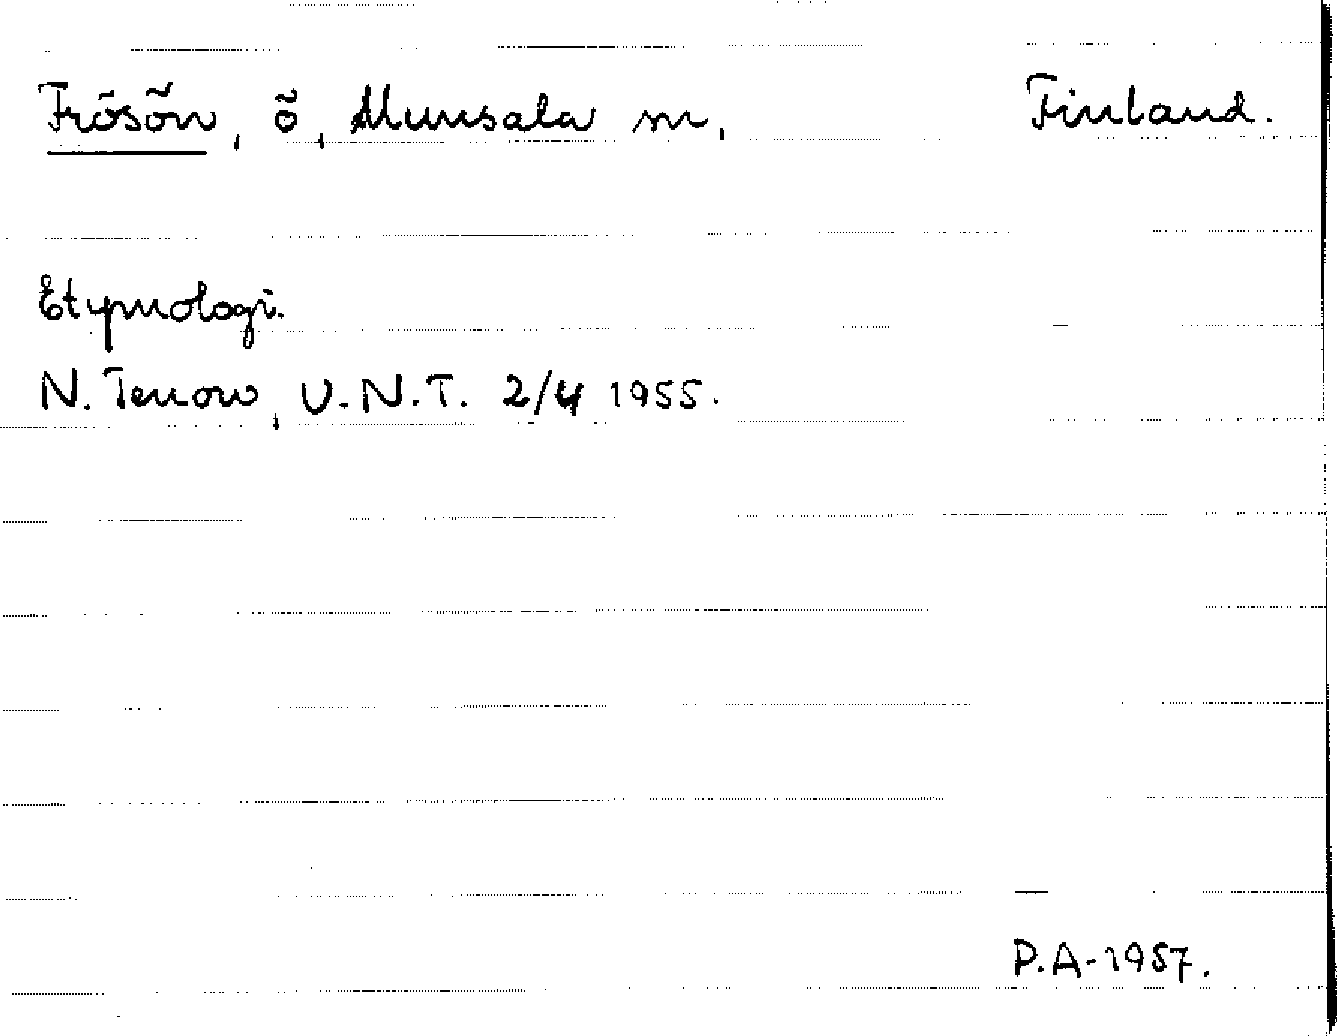 Frösön, ö, Munsala m, Finland.
Etymologi.
N. Tenow, U.N.T. 2/4 1955.
P.A-1957.